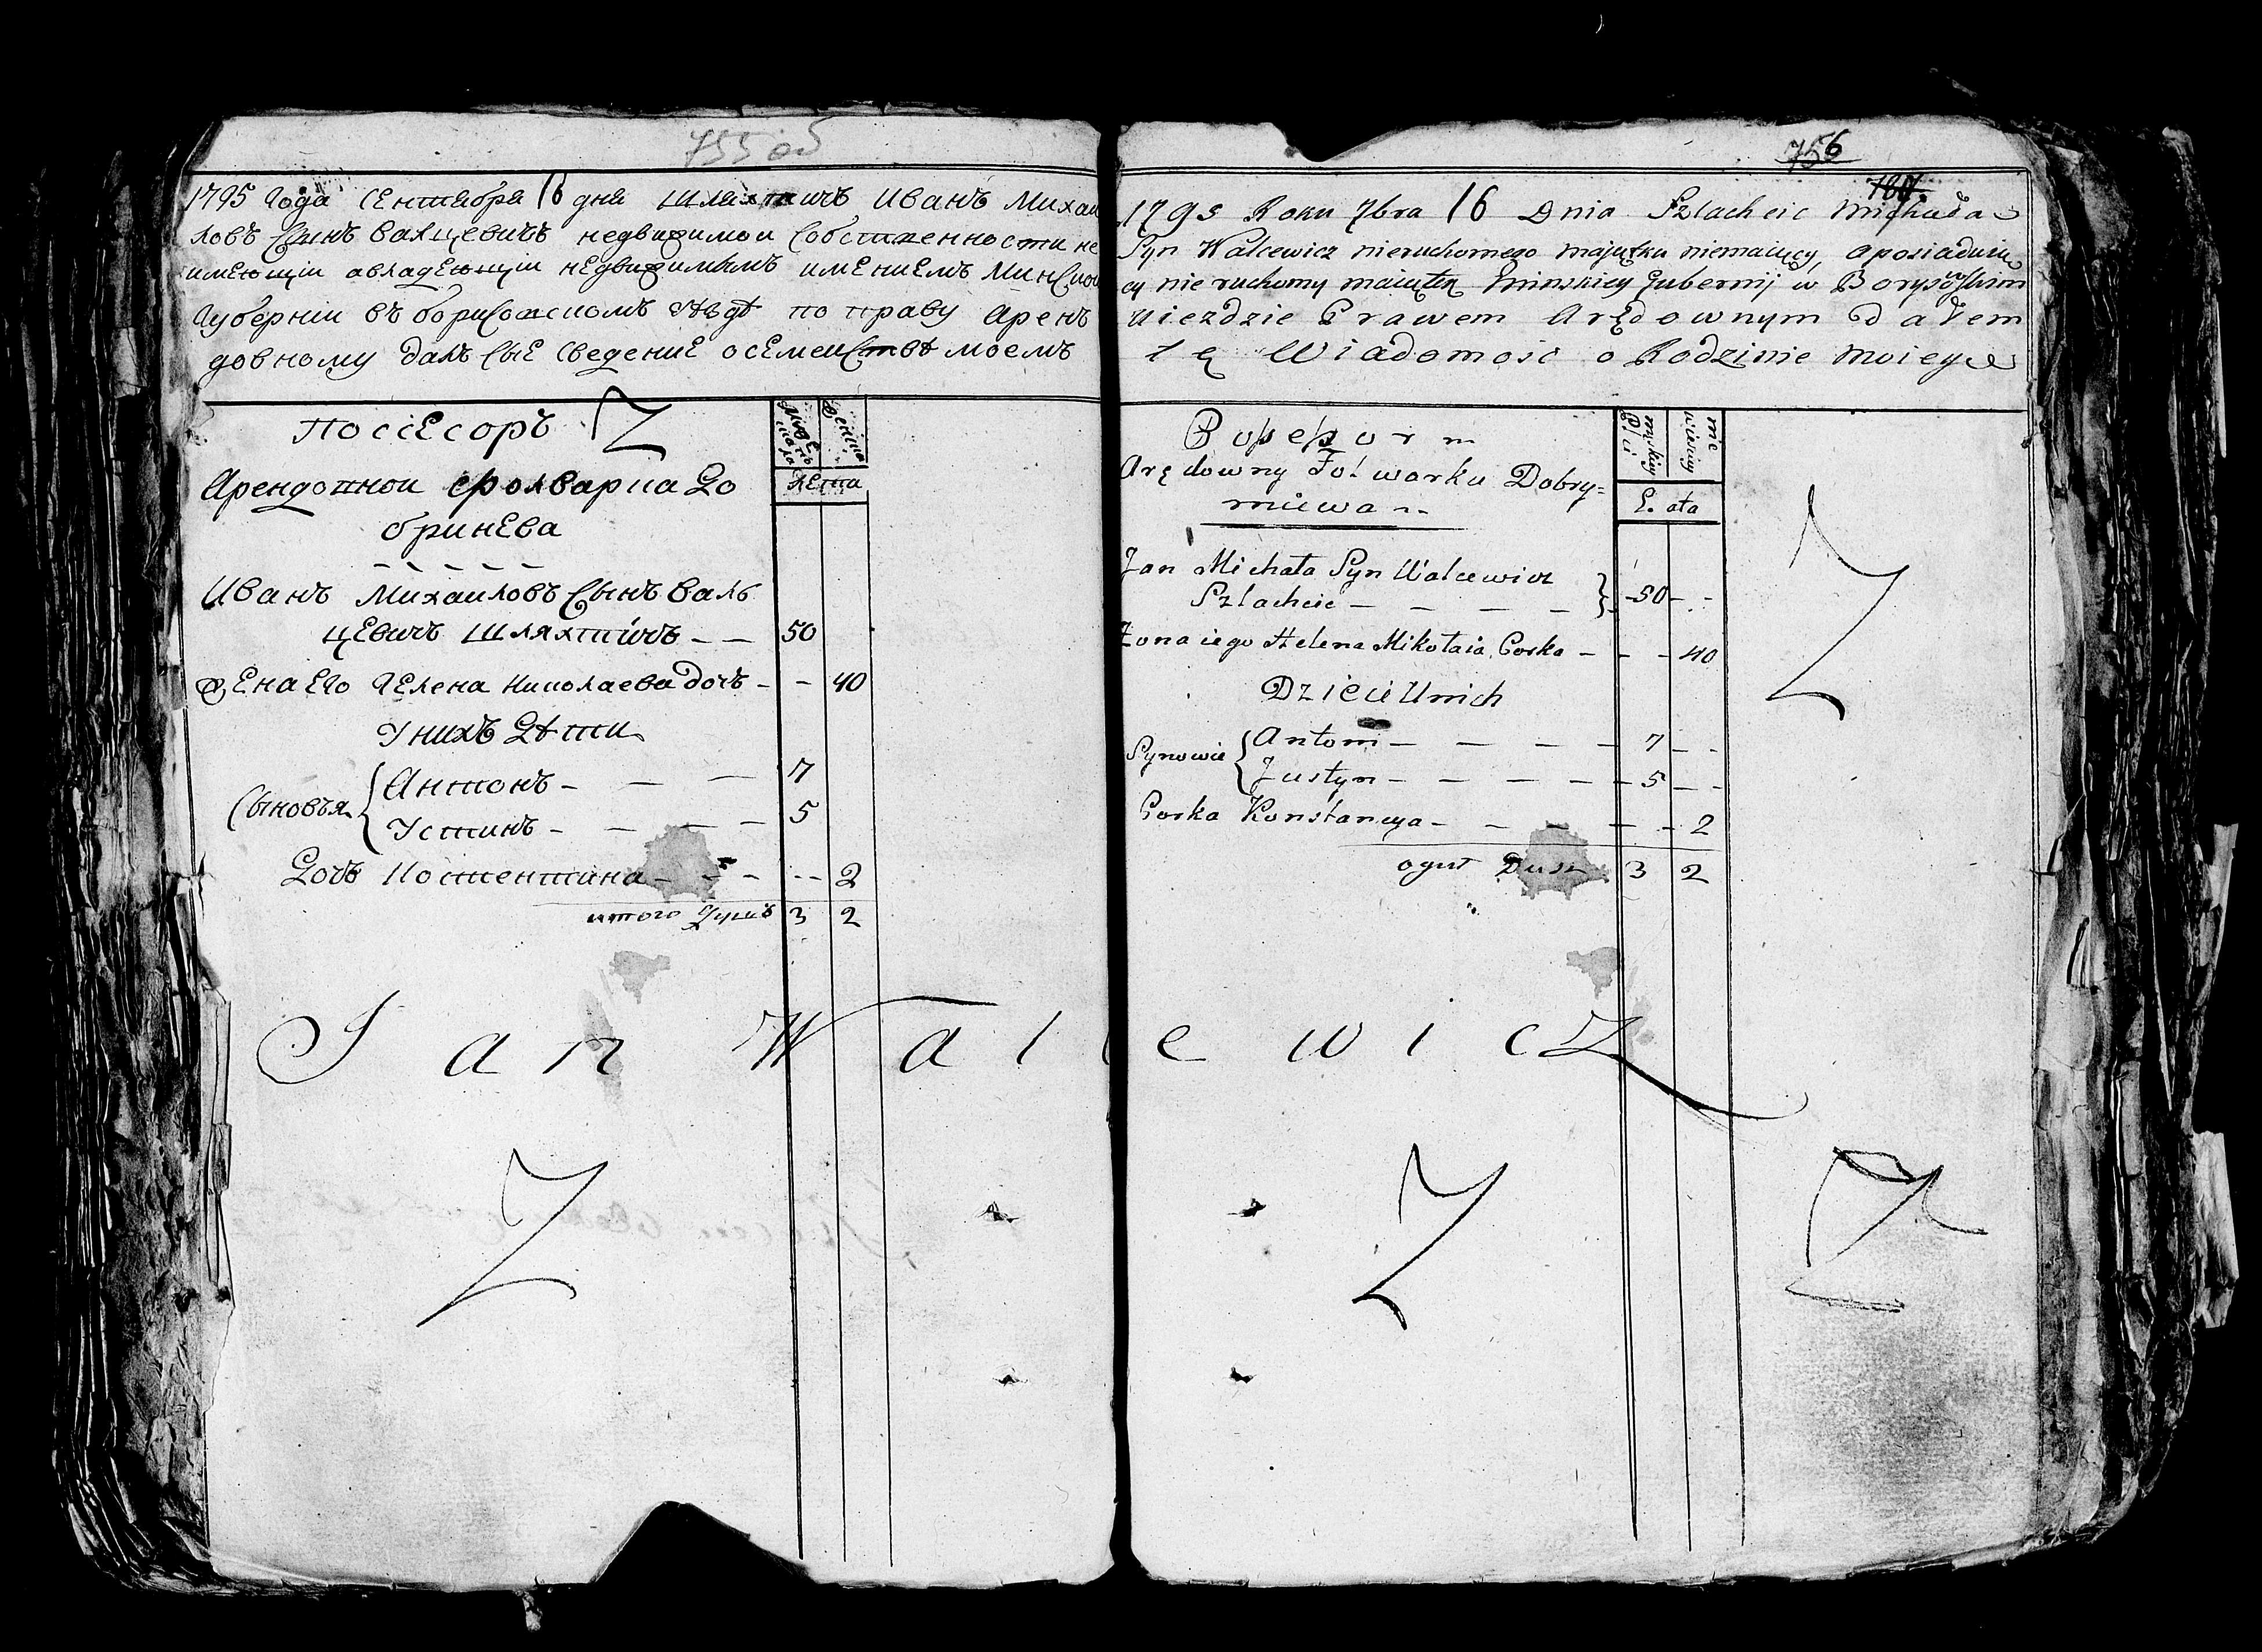 755 об
1795 года Сентября 16 дня Шляхтичъ Иванъ Михаи
ловъ Сынъ Валцевичъ недвижимои Собственности не
имеющии авладеющии недвижимымъ имениемъ Минскои
Губернии въ борисовскомъ уѣздѣ по праву Арен
довному далъ Сые Сведение осемеиствѣ моемъ
Поссесоръ
Мужеска
Женска
Лета
Арендовнои фолварка До
бринева
Иванъ Михаиловъ Сынъ Валь
цевичъ Шляхтичъ - - 50
Жена Его Гелена Николаева дочь - - 40
У нихъ Дѣти
Сыновья { Антонъ - - - 7
Устинъ - - - - 5
Дочь Костентина - - - - - 2
итого Душъ 3 2
756
1795 Roku 7bra 16 Dnia Szlachcic Michała
Syn Walcewicz nieruchomego majątku niemaiący, aposiadaią
cy nie ruchomy maiątek Eminskiey Gubernij w Borysowskim
uiezdzie Prawem Arędownym dałem
tę Wiadomosc o Rodzinie moiey
Possessor
męskiey
Płci
Lata
Arędowny Folwarku Dobry=
niewa
Jan Michała Syn Walcewicz
Szlachcic - - - - } -50- -
Zona iego Helena Mikołaia Corka - - - 40
Dzieci Unich
Synowie { Antoni - - - - 7 - -
Justyn - - - - - 5 - -
Corka Konstancya - - - - - 2
oguł Dusz 3 2
Jan Walcewicz